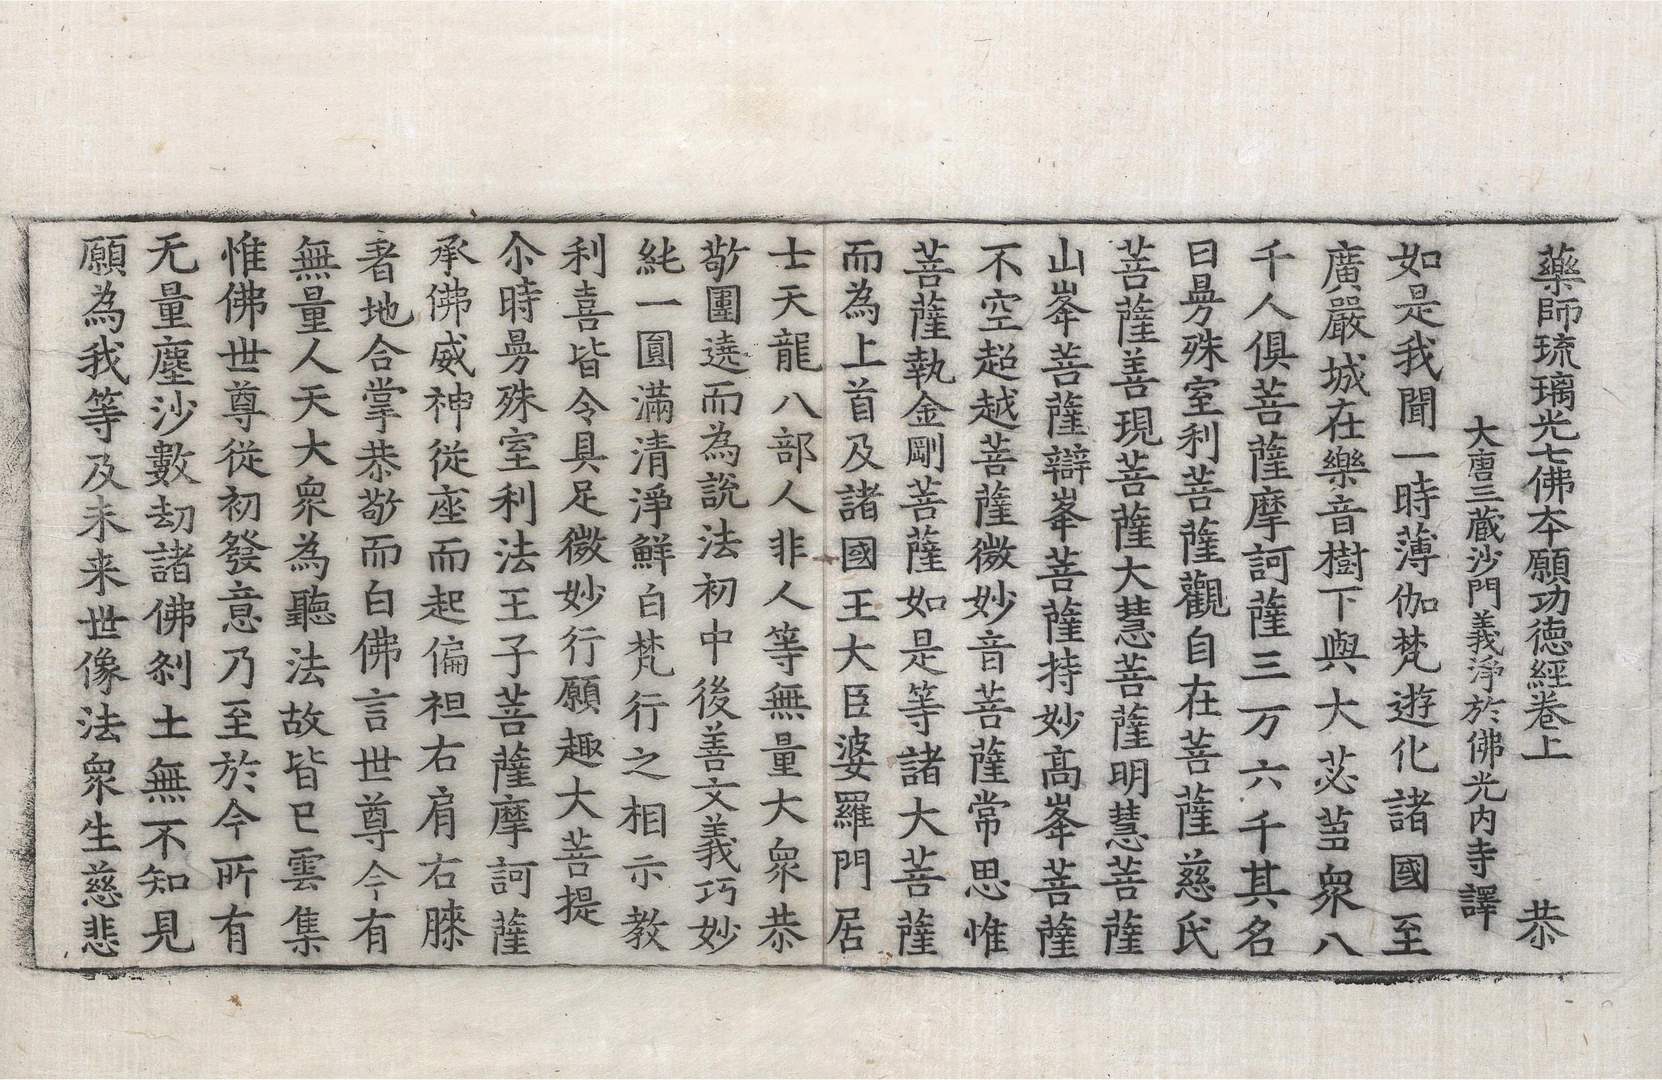 藥師琉璃光七佛本願功德經卷上　恭
大唐三藏沙門義淨於佛光內寺譯
如是我聞一時薄伽梵遊化諸國至
廣嚴城在樂音樹下與大苾芻眾八
千人俱菩薩摩訶薩三万六千其名
曰曼殊室利菩薩觀自在菩薩慈氏
菩薩善現菩薩大慧菩薩明慧菩薩
山峯菩薩辯峯菩薩持妙高峯菩薩
不空超越菩薩微妙音菩薩常思惟
菩薩執金剛菩薩如是等諸大菩薩
而為上首及諸國王大臣婆羅門居
士天龍八部人非人等無量大眾恭
敬圍遶而為說法初中後善文義巧妙
純一圓滿清淨鮮白梵行之相示教
利喜皆令具足微妙行願趣大菩提
尒時曼殊室利法王子菩薩摩訶薩
承佛威神從座而起偏袒右肩右膝
著地合掌恭敬而白佛言世尊今有
無量人天大眾為聽法故皆已雲集
惟佛世尊從初發意乃至於今所有
无量塵沙數劫諸佛剎土無不知見
願為我等及未来世像法眾生慈悲